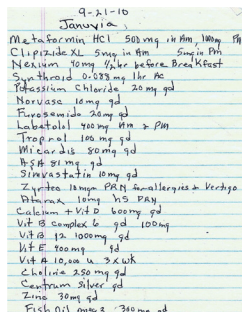 9-21-10
Januvia
Metaformin HCl 500 mg in Am, 1000mg PM
Clipizide XL 5mg in Am 5mg in Pm
Nexium 40mg 1/2 hr before Breakfast
Synthroid 0.088 mg 1hr Ac
Potassium Chloride 20 mg qd
Norvasc 10mg qd
Furosemide 20mg qd
Labatolol 400mg Am & PM
Toprol 100 mg qd
Micardis 80mg qd
ASA 81 mg qd
Simvastatin 10mg qd
Zyrtec 10mg PRN for allergies & Vertigo
Atarax 10mg hs PRN
Calcium + Vit D 600mg qd
Vit B complex 6 qd 100mg
Vit B 12 1000mg qd
Vit E 400mg qd
Vit A 10,000 u 3 x wk
Choline 250 mg qd
Centrum Silver qd
Zinc 30mg qd
Fish Oil omega 3 300 mg qd